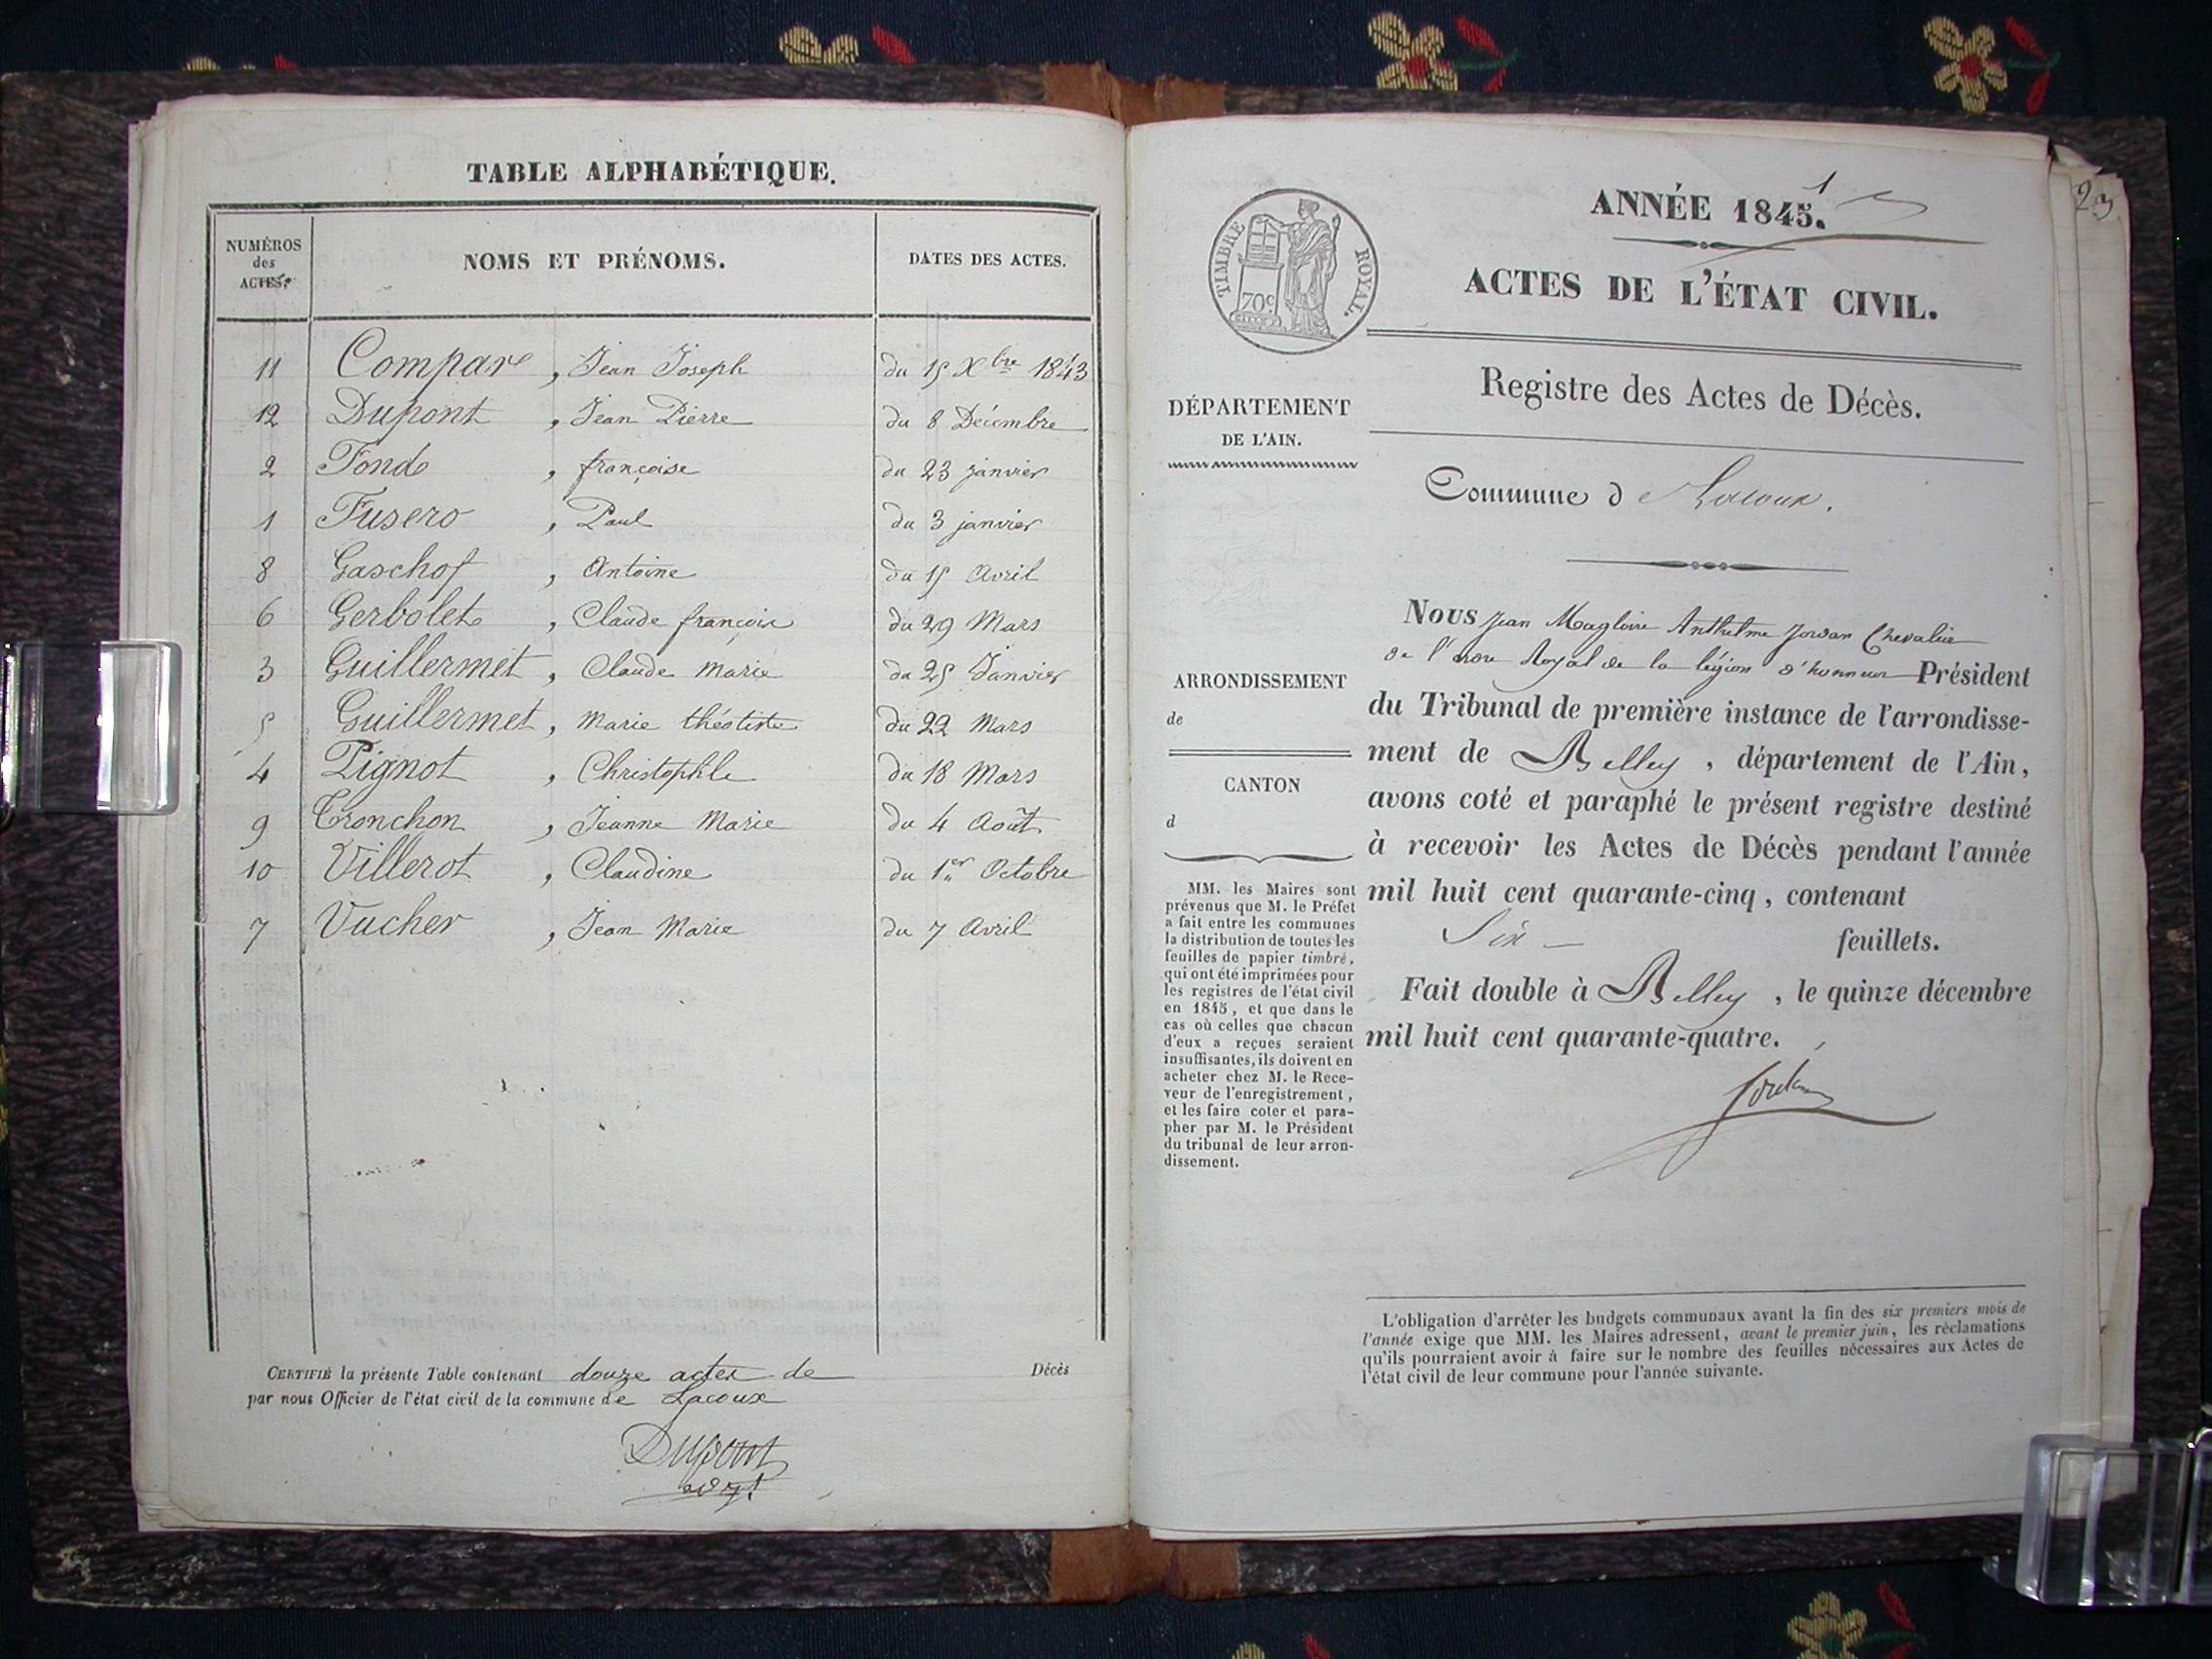 TABLE ALPHABÉTIQUE.
NUMÉROS des ACTES.
NOMS ET PRÉNOMS.
DATES DES ACTES.
11 Compare, Jean Joseph du 15 Xbre 1843
12 Dupont, Jean Pierre du 8 Décembre
2 Fond, françoise du 23 janvier
1 Fusero, Paul du 3 janvier
8 Gaschof, Antoine du 15 Avril
6 Gerbolet, Claude françoise du 29 Mars
3 Guillermet, Claude Marie du 25 Janvier
5 Guillermet, Marie théotiste du 22 Mars
4 Pignot, Christophle du 18 Mars
9 Tronchon, Jeanne Marie du 4 Août
10 Villerot, Claudine du 1er Octobre
7 Vucher, Jean Marie du 7 Avril
CERTIFIÉ la présente Table contenant douze actes de Décès
par nous Officier de l'état civil de la commune de Lacoux
Dupont
1
23
ANNÉE 1845.
ACTES DE L'ÉTAT CIVIL.
TIMBRE ROYAL.
70c
Registre des Actes de Décès.
DÉPARTEMENT
DE L'AIN.
Commune de Lacoux.
ARRONDISSEMENT
de
CANTON
d
MM. les Maires sont
prévenus que M. le Préfet
a fait entre les communes
la distribution de toutes les
feuilles de papier timbré,
qui ont été imprimées pour
les registres de l'état civil
en 1845, et que dans le
cas où celles que chacun
d'eux a reçues seraient
insuffisantes, ils doivent en
acheter chez M. le Rece-
veur de l'enregistrement,
et les faire coter et para-
pher par M. le Président
du tribunal de leur arron-
dissement.
Nous Jean Magloire Anthelme Jordan Chevalier
de l'ordre Royal de la légion d'honneur Président
du Tribunal de première instance de l'arrondisse-
ment de Belley, département de l'Ain,
avons coté et paraphé le présent registre destiné
à recevoir les Actes de Décès pendant l'année
mil huit cent quarante-cinq, contenant
Six feuillets.
Fait double à Belley, le quinze décembre
mil huit cent quarante-quatre.
Jordan
L'obligation d'arrêter les budgets communaux avant la fin des six premiers mois de
l'année exige que MM. les Maires adressent, avant le premier juin, les réclamations
qu'ils pourraient avoir à faire sur le nombre des feuilles nécessaires aux Actes de
l'état civil de leur commune pour l'année suivante.